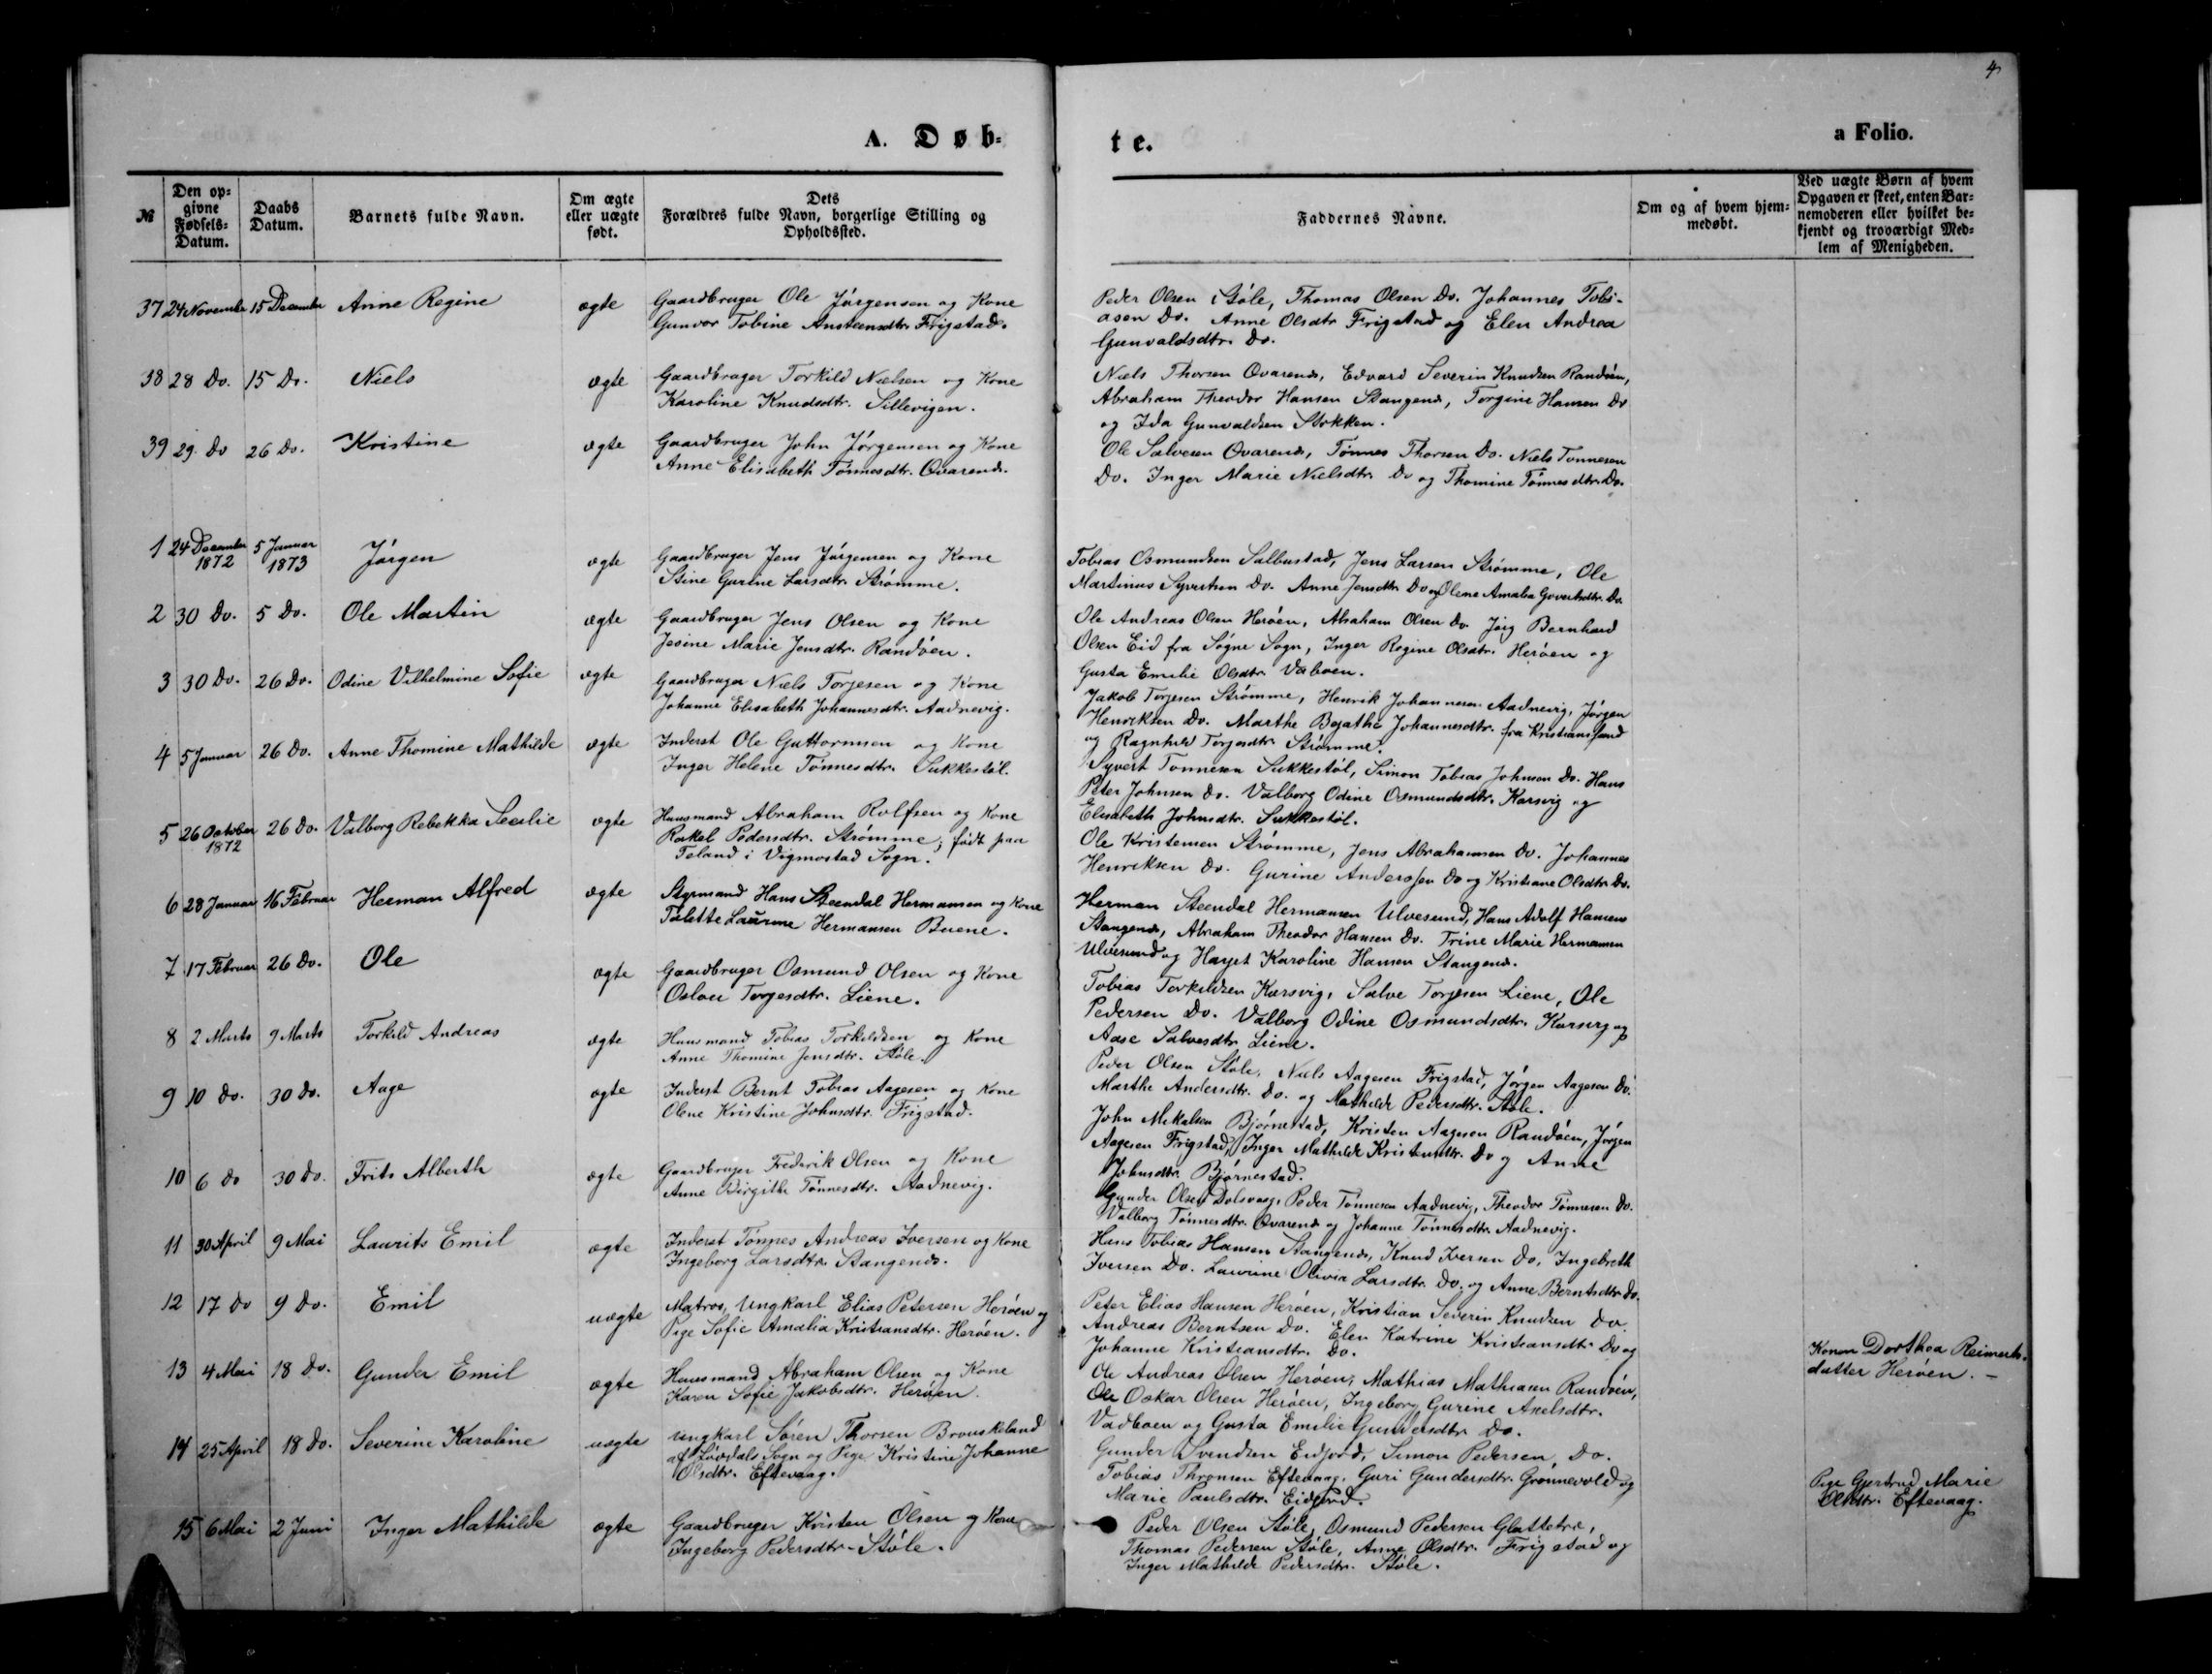 4
A. Døb-
te.
a Folio.
№
Den op-
givne
Fødsels-
Datum.
Daabs
Datum.
Barnets fulde Navn.
Om ægte
eller uægte
født.
Dets
Forældres fulde Navn, borgerlige Stilling og
Opholdssted.
Faddernes Navne.
Om og af hvem hjem-
medøbt.
Ved uægte Børn af hvem
Opgaven er skeet, enten Bar-
nemoderen eller hvilket be-
kjendt og troværdigt Med-
lem af Menigheden.
37 24 November 15 December Anne Regine ægte Gaardbruger Ole Jørgensen og Kone
Gunvor Tobine Ansteensdtr. Frigstad.
Peder Olsen Støle, Thomas Olsen Do. Johannes Tobi-
asen Do. Anne Olsdtr Frigstad og Elen Andrea
Gunvaldsdtr. Do.
38 28 Do. 15 Do. Niels ægte Gaardbruger Torkild Nielsen og Kone
Karoline Knudsdtr. Sillevigen.
Niels Thorsen Ovarends, Edvard Severin Knudsen Randøen,
Abraham Theodor Hansen Stangends, Torgine Hansen Do
og Ida Gunvaldsen Stokken.
39 29 Do 26 Do. Kristine ægte Gaardbruger John Jørgensen og Kone
Anne Elisabeth Tønnesdtr. Ovarends.
Ole Salvesen Ovarends, Tønnes Thorsen Do. Niels Tønnesen
Do. Inger Marie Nielsdtr. Do og Thomine Tønnesdtr. Do.
1 24 December 5 Januar Jørgen ægte Gaardbruger Jens Jørgensen og Kone
1872 1873
Stine Gurine Larsdtr. Strømme.
Tobias Osmundsen Salbustad, Jens Larsen Strømme, Ole
Martinus Syvertsen Do. Anne Jensdtr. Do og Olene Amalia Govertsdtr. Do.
2 30 Do. 5 Do. Ole Martin ægte Gaardbruger Jens Olsen og Kone
Jesine Marie Jensdtr. Randøen.
Ole Andreas Olsen Herøen, Abraham Olsen Do. Jørg Bernhard
Olsen Eid fra Søgne Sogn, Inger Regine Olsdtr. Herøen og
Gusta Emilie Olsdtr.
3 30 Do. 26 Do. Odine Vilhelmine Sofie ægte Gaardbruger Niels Torjesen og Kone
Johanne Elisabeth Johannesdtr. Aadnevig.
Jakob Torjesen Strømme, Henrik Johannesen Aadnevig, Jørgen
Henriksen Do. Marthe Bejathe Johannesdtr. fra Kristianssand
og Ragnhild Torjesdtr. Strømme.
4 5 Januar 26 Do. Anne Thomine Mathilde ægte Inderst Ole Guttormsen og Kone
Inger Helene Tønnesdtr. Sukkestøl.
Syvert Tønnesen Sukkestøl, Simon Tobias Johnsen Do. Hans
Peter Johnsen Do. Valborg Odine Osmundsdtr. Karsvig og
Elisabeth Johnsdtr. Sukkestøl.
5 26 October 26 Do. Valborg Rebekka Secilie ægte Huusmand Abraham Rolfsen og Kone
1872
Rakel Pedersdtr. Strømme, født paa
Feland i Vigmostad Sogn.
Ole Kristensen Strømme, Jens Abrahamsen Do. Johannes
Henriksen Do. Gurine Anderssen Do og Kristiane Olsdtr. Do.
6 28 Januar 16 Februar Herman Alfred ægte Styrmand Hans Steendal Hermansen og Kone
Tolette Laurine Hermansen Buene.
Herman Steendal Hermansen Ulvesund, Hans Adolf Hansen
Stangends, Abraham Theodor Hansen Do. Trine Marie Hermansen
Ulvesund og Karoline Hansen Stangends.
7 17 Februar 26 Do. Ole ægte Gaardbruger Osmund Olsen og Kone
Torjesdtr. Liene.
Tobias Torkildsen Karsvig, Salve Torjesen Liene, Ole
Pedersen Do. Valborg Odine Osmundsdtr. Karsvig og
Aase Salvesdtr. Liene.
8 2 Marts 9 Marts Torkild Andreas ægte Huusmand Tobias Torkildsen og Kone
Anne Thomine Jensdtr. Støle.
Peder Olsen Støle, Niels Aagesen Frigstad, Jørgen Aagesen Do.
Marthe Andersdtr. Do. og Mathilde Pedersdtr. Støle.
9 10 Do. 30 Do. Aage ægte Inderst Bernt Tobias Aagesen og Kone
Olene Kristine Johnsdtr. Frigstad.
John Mikalsen Bjørnestad, Kristen Aagesen Randøen, Jørgen
Aagesen Frigstad, Inger Mathilde Kristensdtr. Do og Anne
Johnsdtr. Bjørnestad.
10 6 Do 30 Do. Frits Alberth ægte Gaardbruger Frederik Olsen og Kone
Anne Birgithe Tønnesdtr. Aadnevig.
Gunder Olsen Dolsvaag, Peder Tønnesen Aadnevig, Theodor Tønnesen Do.
Valborg Tønnesdtr. Ovarends og Johanne Tønnesdtr. Aadnevig.
11 30 April 9 Mai Laurits Emil ægte Inderst Tønnes Andreas Iversen og Kone
Ingeborg Larsdtr. Stangends.
Hans Tobias Hansen Stangends, Knud Iversen Do. Ingebreth
Iversen Do. Laurine Olivia Larsdtr. Do. og Anne Berntsdtr. Do.
12 17 Do 9 Do. Emil uægte Matros, Ungkarl Elias Petersen Herøen og
Pige Sofie Amalia Kristiansdtr. Herøen.
Peter Elias Hansen Herøen, Kristian Severin Knudsen Do.
Andreas Berntsen Do. Elen Katrine Kristiansdtr Do og
Johanne Kristiansdtr. Do.
Konen Dorthea Reimerts-
datter Herøen. -
13 4 Mai 18 Do. Gunder Emil ægte Huusmand Abraham Olsen og Kone
Karen Sofie Jakobsdtr. Herøen.
Ole Andreas Olsen Herøen, Mathias Mathiasen Randøen,
Ole Oskar Olsen Herøen, Ingeborg Gurine Axelsdtr.
Vadboen og Gusta Emilie Gundersdtr. Do.
14 25 April 18 Do. Severine Karoline uægte Ungkarl Søren Thorsen Brouskeland
af Løvdals Sogn og Pige Kristine Johanne
Olsdtr. Eftevaag.
Gunder Svendsen Eidjord, Simon Pedersen Do.
Tobias Thronsen Eftevaag, Guri Gundersdtr. Grønnevold og
Marie Paulsdtr. Eidjord.
Pige Gjertrud Marie
Olsdtr. Eftevaag.
15 6 Mai 2 Juni Inger Mathilde ægte Gaardbruger Kristen Olsen og Kone
Ingeborg Pedersdtr. Støle.
Peder Olsen Støle, Osmund Pedersen Glattetre,
Thomas Pedersen Støle, Anne Olsdtr. Frigstad og
Inger Mathilde Pedersdtr. Støle.